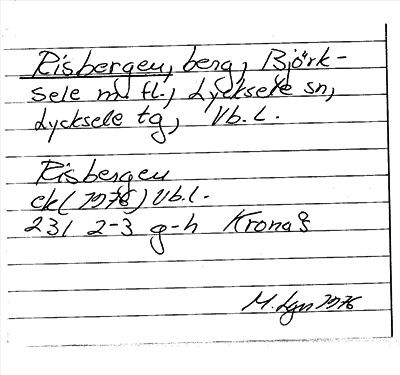 Risbergen, berg, Björk-
sele m. fl., Lycksele sn,
Lycksele tg, Vb. l.
Risbergen
ek (1976) Vb. l.
231 2-3 g-h
M. Lgn 1976